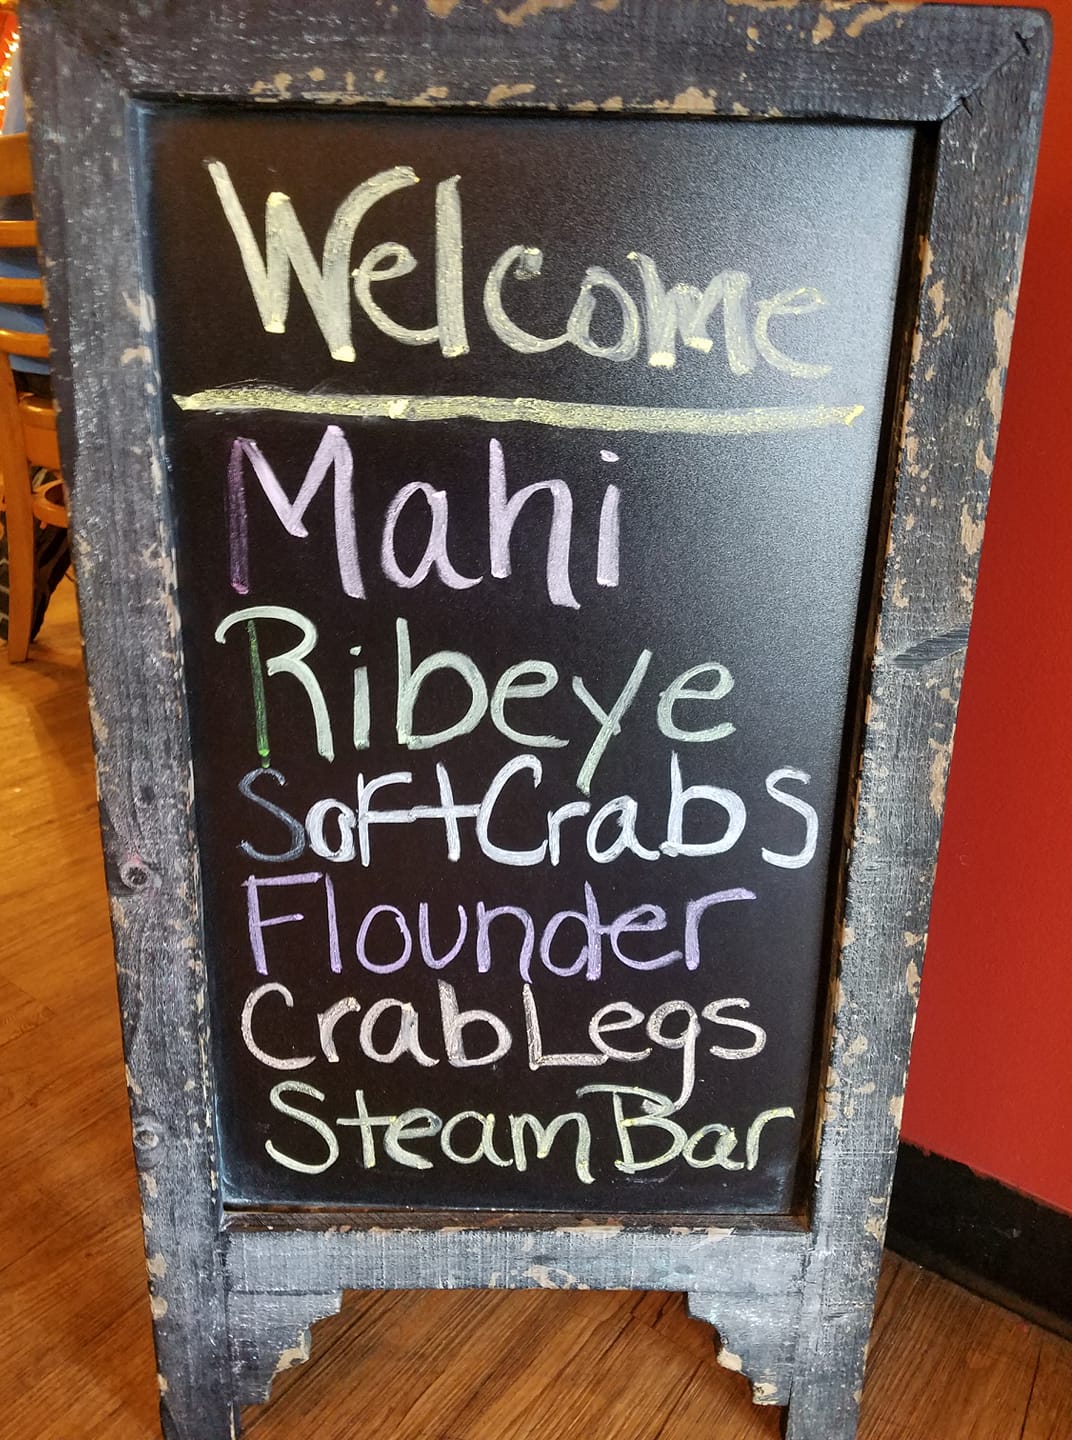 Welcome
Mahi
Ribeye
Soft Crabs
Flounder
Crab Legs
Steam Bar